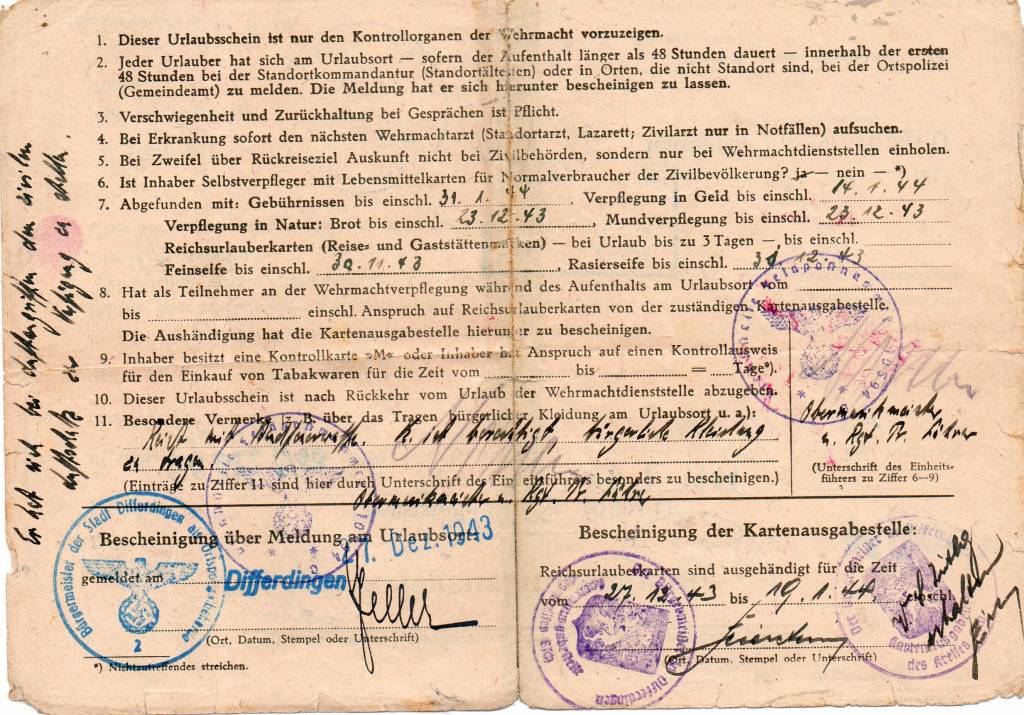 1. Dieser Urlaubsschein ist nur den Kontrollorganen der Wehrmacht vorzuzeigen.
2. Jeder Urlauber hat sich am Urlaubsort — sofern der Aufenthalt länger als 48 Stunden dauert — innerhalb der ersten
48 Stunden bei der Standortkommandantur (Standortältesten) oder in Orten, die nicht Standort sind, bei der Ortspolizei
(Gemeindeamt) zu melden. Die Meldung hat er sich hierunter bescheinigen zu lassen.
3. Verschwiegenheit und Zurückhaltung bei Gesprächen ist Pflicht.
4. Bei Erkrankung sofort den nächsten Wehrmachtarzt (Standortarzt, Lazarett; Zivilarzt nur in Notfällen) aufsuchen.
5. Bei Zweifel über Rückreiseziel Auskunft nicht bei Zivilbehörden, sondern nur bei Wehrmachtdienststellen einholen.
6. Ist Inhaber Selbstverpfleger mit Lebensmittelkarten für Normalverbraucher der Zivilbevölkerung? ja — nein — *)
7. Abgefunden mit: Gebührnissen bis einschl. 31.1.44, Verpflegung in Geld bis einschl. 14.1.44
Verpflegung in Natur: Brot bis einschl. 23.12.43, Mundverpflegung bis einschl. 23.12.43
Reichsurlauberkarten (Reise- und Gaststättenmarken) — bei Urlaub bis zu 3 Tagen — bis einschl.
Feinseife bis einschl. 30.11.43, Rasierseife bis einschl. 31.12.43
8. Hat als Teilnehmer an der Wehrmachtverpflegung während des Aufenthalts am Urlaubsort vom
bis einschl. Anspruch auf Reichsurlauberkarten von der zuständigen Kartenausgabestelle.
Die Aushändigung hat die Kartenausgabestelle hierunter zu bescheinigen.
9. Inhaber besitzt eine Kontrollkarte »M« oder Inhaber hat Anspruch auf einen Kontrollausweis
für den Einkauf von Tabakwaren für die Zeit vom bis = Tage*).
10. Dieser Urlaubsschein ist nach Rückkehr vom Urlaub der Wehrmachtdienststelle abzugeben.
11. Besondere Vermerke (z. B. über das Tragen bürgerlicher Kleidung am Urlaubsort u. a.):
ist berechtigt, bürgerliche Kleidung
zu tragen.
(Einträge zu Ziffer 11 sind hier durch Unterschrift des Einheitsführers besonders zu bescheinigen.)
(Unterschrift des Einheitsführers zu Ziffer 6—9)
Bescheinigung über Meldung am Urlaubsort:
27. Dez. 1943
gemeldet am
Differdingen
(Ort, Datum, Stempel oder Unterschrift)
*) Nichtzutreffendes streichen.
Bürgermeister der Stadt Differdingen als
2
Bescheinigung der Kartenausgabestelle:
Reichsurlauberkarten sind ausgehändigt für die Zeit
vom 27.12.43 bis 19.1.44, einschl.
(Ort, Datum, Stempel oder Unterschrift)
Differdingen
des Kreises